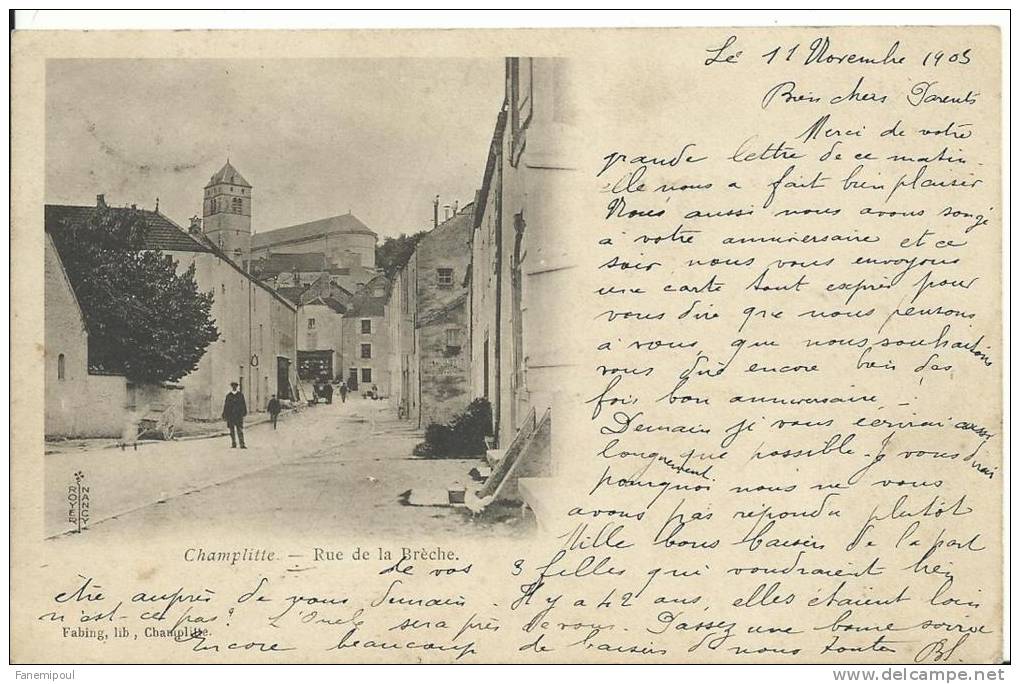 Le 11 Novembre 1903
Bien chers Parents
Merci de votre
grande lettre de ce matin
elle nous a fait bien plaisir
Nous aussi nous avons songé
à votre anniversaire et ce
soir nous vous envoyons
une carte tout exprès pour
vous dire que nous pensons
à vous, que nous souhaitons
vous dire encore bien des
fois bon anniversaire
Demain je vous écrirai aussi
longuement que possible. Je vous dirai
pourquoi nous ne vous
avons pas répondu plutôt
Mille bons baisers de la part
de vos 3 filles qui voudraient bien
être auprès de vous demain. Il y a 42 ans, elles étaient loin
n'est-ce pas? L'Oncle sera près de vous. Passez une bonne soirée
Encore beaucoup de baisers de nous toutes
ROYER NANCY
Champlitte. — Rue de la Brèche.
Fabing, lib, Champlitte.
Fanemipoul
www.delcampe.net